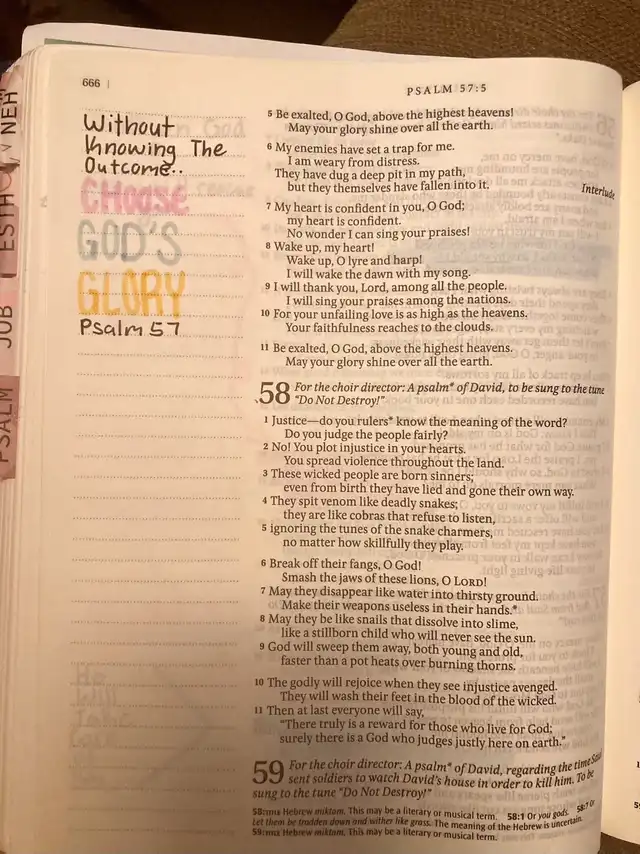 666
PSALM 57:5
Without
Knowing The
Outcome..
CHOOSE
GOD'S
GLORY
Psalm 57
NEH
ESTH
JOB
PSALM
5 Be exalted, O God, above the highest heavens!
May your glory shine over all the earth.
6 My enemies have set a trap for me.
I am weary from distress.
They have dug a deep pit in my path,
but they themselves have fallen into it.
Interlude
7 My heart is confident in you, O God;
my heart is confident.
No wonder I can sing your praises!
8 Wake up, my heart!
Wake up, O lyre and harp!
I will wake the dawn with my song.
9 I will thank you, Lord, among all the people.
I will sing your praises among the nations.
10 For your unfailing love is as high as the heavens.
Your faithfulness reaches to the clouds.
11 Be exalted, O God, above the highest heavens.
May your glory shine over all the earth.
58 For the choir director: A psalm* of David, to be sung to the tune
"Do Not Destroy!"
1 Justice—do you rulers* know the meaning of the word?
Do you judge the people fairly?
2 No! You plot injustice in your hearts.
You spread violence throughout the land.
3 These wicked people are born sinners;
even from birth they have lied and gone their own way.
4 They spit venom like deadly snakes;
they are like cobras that refuse to listen,
5 ignoring the tunes of the snake charmers,
no matter how skillfully they play.
6 Break off their fangs, O God!
Smash the jaws of these lions, O LORD!
7 May they disappear like water into thirsty ground.
Make their weapons useless in their hands.*
8 May they be like snails that dissolve into slime,
like a stillborn child who will never see the sun.
9 God will sweep them away, both young and old,
faster than a pot heats over burning thorns.
10 The godly will rejoice when they see injustice avenged.
They will wash their feet in the blood of the wicked.
11 Then at last everyone will say,
"There truly is a reward for those who live for God;
surely there is a God who judges justly here on earth."
59 For the choir director: A psalm* of David, regarding the time Saul
sent soldiers to watch David's house in order to kill him. To be
sung to the tune "Do Not Destroy!"
58:TITLE Hebrew miktam. This may be a literary or musical term. 58:1 Or you gods. 58:7 Or
Let them be trodden down and wither like grass. The meaning of the Hebrew is uncertain.
59:TITLE Hebrew miktam. This may be a literary or musical term.